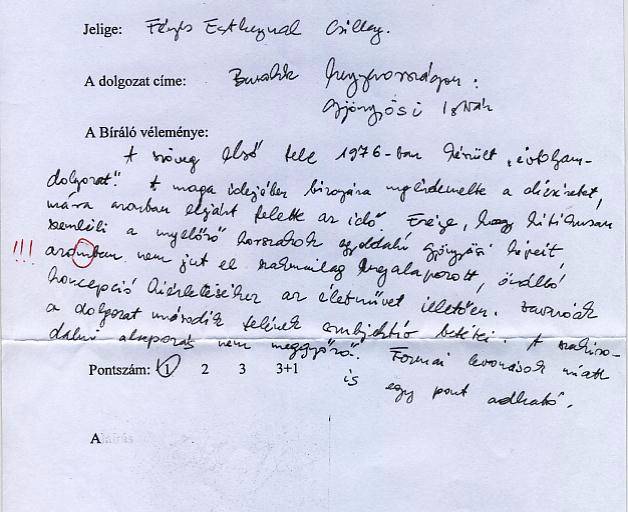 Jelige: Fényes Esthajnal Csillag.
A dolgozat címe: Barokk Magyarországon:
Gyöngyösi István
A Bíráló véleménye:
A szöveg első fele 1976-ban készült „évfolyam-
dolgozat". A maga idejében bizonyára megérdemelte a dicséretet,
mára azonban eljárt felette az idő. Erénye, hogy kritikusan
szemléli a megelőző korszakok egyoldalú Gyöngyösi képeit,
!!! azomban nem jut el szakmailag megalapozott, önálló
koncepció kísérletéséhez az életművet illetően. Zavaróak
a dolgozat második felének szubjektív betétei. A szakiro-
dalmi alapozás nem meggyőző. Formai levonások miatt
Pontszám: 1 2 3 3+1 is egy pont adható.
Aláírás